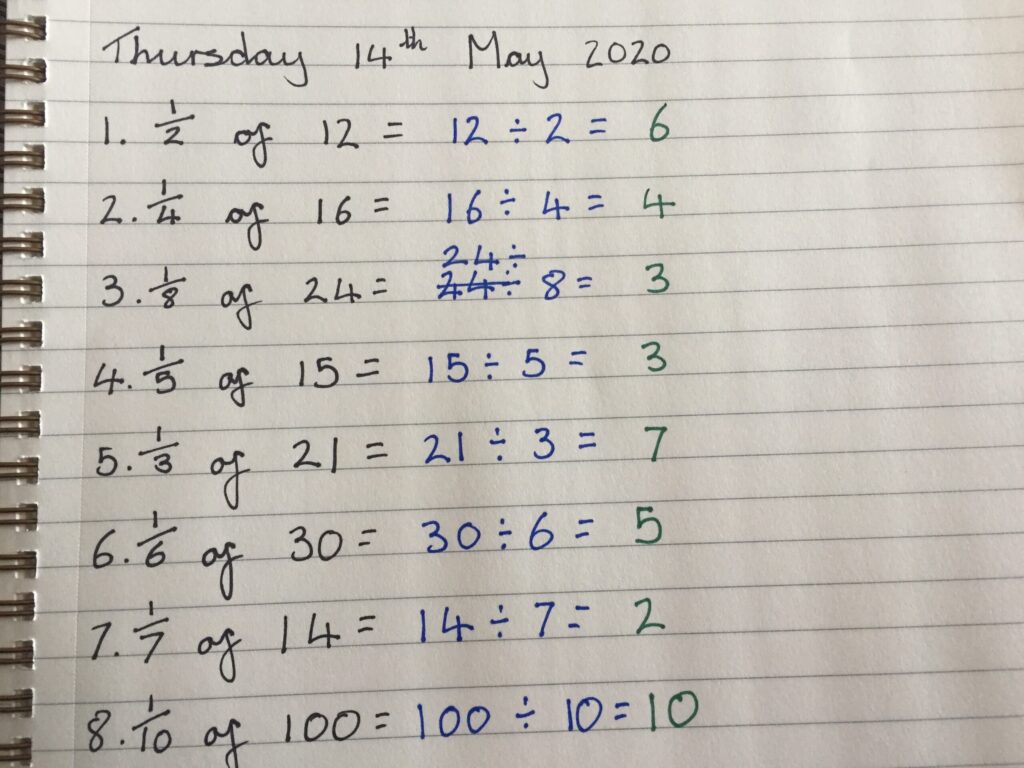 Thursday 14th May 2020
1. 1/2 of 12 = 12 ÷ 2 = 6
2. 1/4 of 16 = 16 ÷ 4 = 4
24 ÷
3. 1/8 of 24 = 24 ÷ 8 = 3
4. 1/5 of 15 = 15 ÷ 5 = 3
5. 1/3 of 21 = 21 ÷ 3 = 7
6. 1/6 of 30 = 30 ÷ 6 = 5
7. 1/7 of 14 = 14 ÷ 7 = 2
8. 1/10 of 100 = 100 ÷ 10 = 10